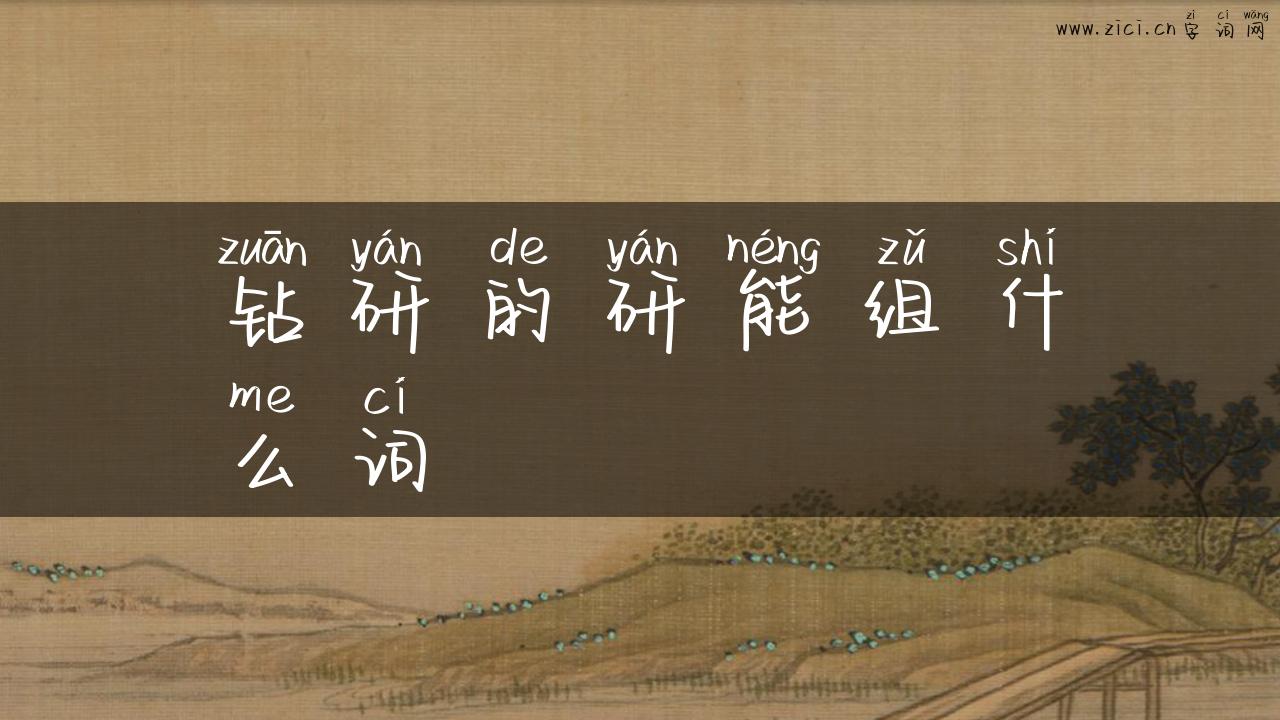 zì cí wǎng
www.zici.cn 字词网
zuān yán de yán néng zǔ shí
钻研的研能组什
me cí
么词